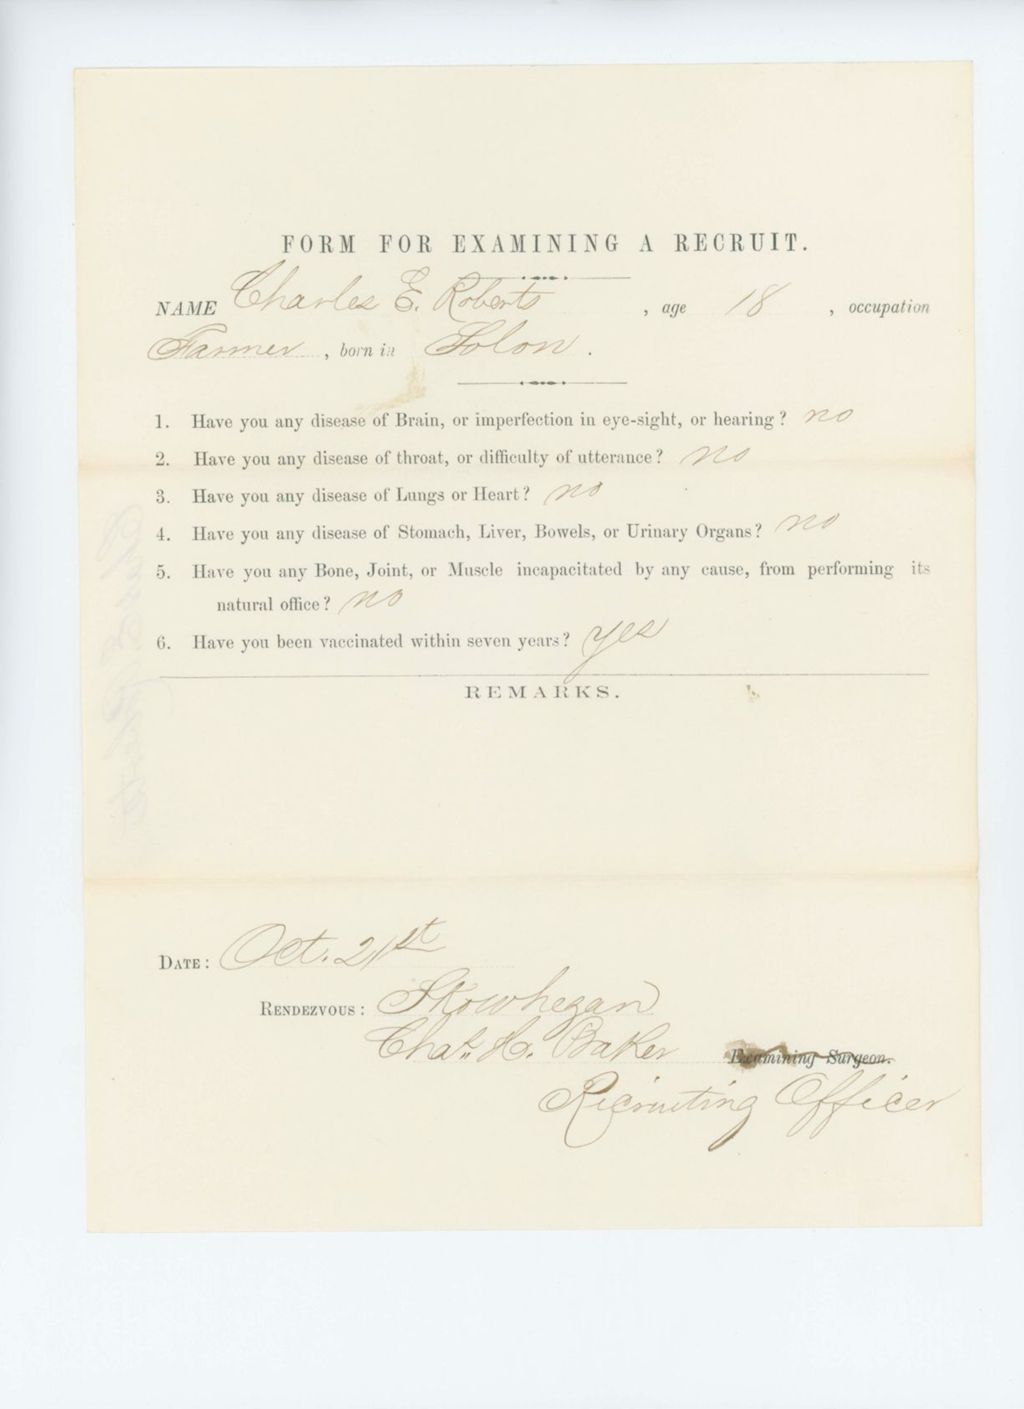 FORM FOR EXAMINING A RECRUIT.
NAME Charles E. Roberts, age 18, occupation
Farmer, born in Solon.
1. Have you any disease of Brain, or imperfection in eye-sight, or hearing? no
2. Have you any disease of throat, or difficulty of utterance? no
3. Have you any disease of Lungs or Heart? no
4. Have you any disease of Stomach, Liver, Bowels, or Urinary Organs? no
5. Have you any Bone, Joint, or Muscle incapacitated by any cause, from performing its
natural office? no
6. Have you been vaccinated within seven years? yes
REMARKS.
DATE: Oct. 21st
RENDEZVOUS: Skowhegan
Chas. H. Baker Examining Surgeon.
Recruiting Officer